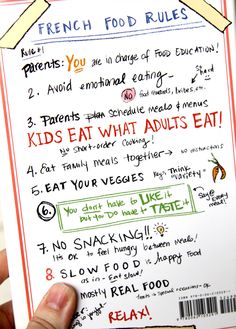 FRENCH FOOD RULES
Rule #1
Parents: You are in charge of FOOD EDUCATION!
2. Avoid emotional eating
NO food rewards, bribes, etc.
3. Parents plan schedule meals & menus
KIDS EAT WHAT ADULTS EAT!
NO short-order cooking!
4. Eat Family meals together → no distractions
5. EAT YOUR VEGGIES
Think "Variety"
6. You don't have to LIKE it
but you Do have to TASTE it
Say @ every meal!
7. NO SNACKING!!
It's ok to feel hungry between meals!
8. SLOW FOOD is happy Food
as in - Eat slow!
mostly REAL FOOD
treats = special occasions - ok
RELAX!